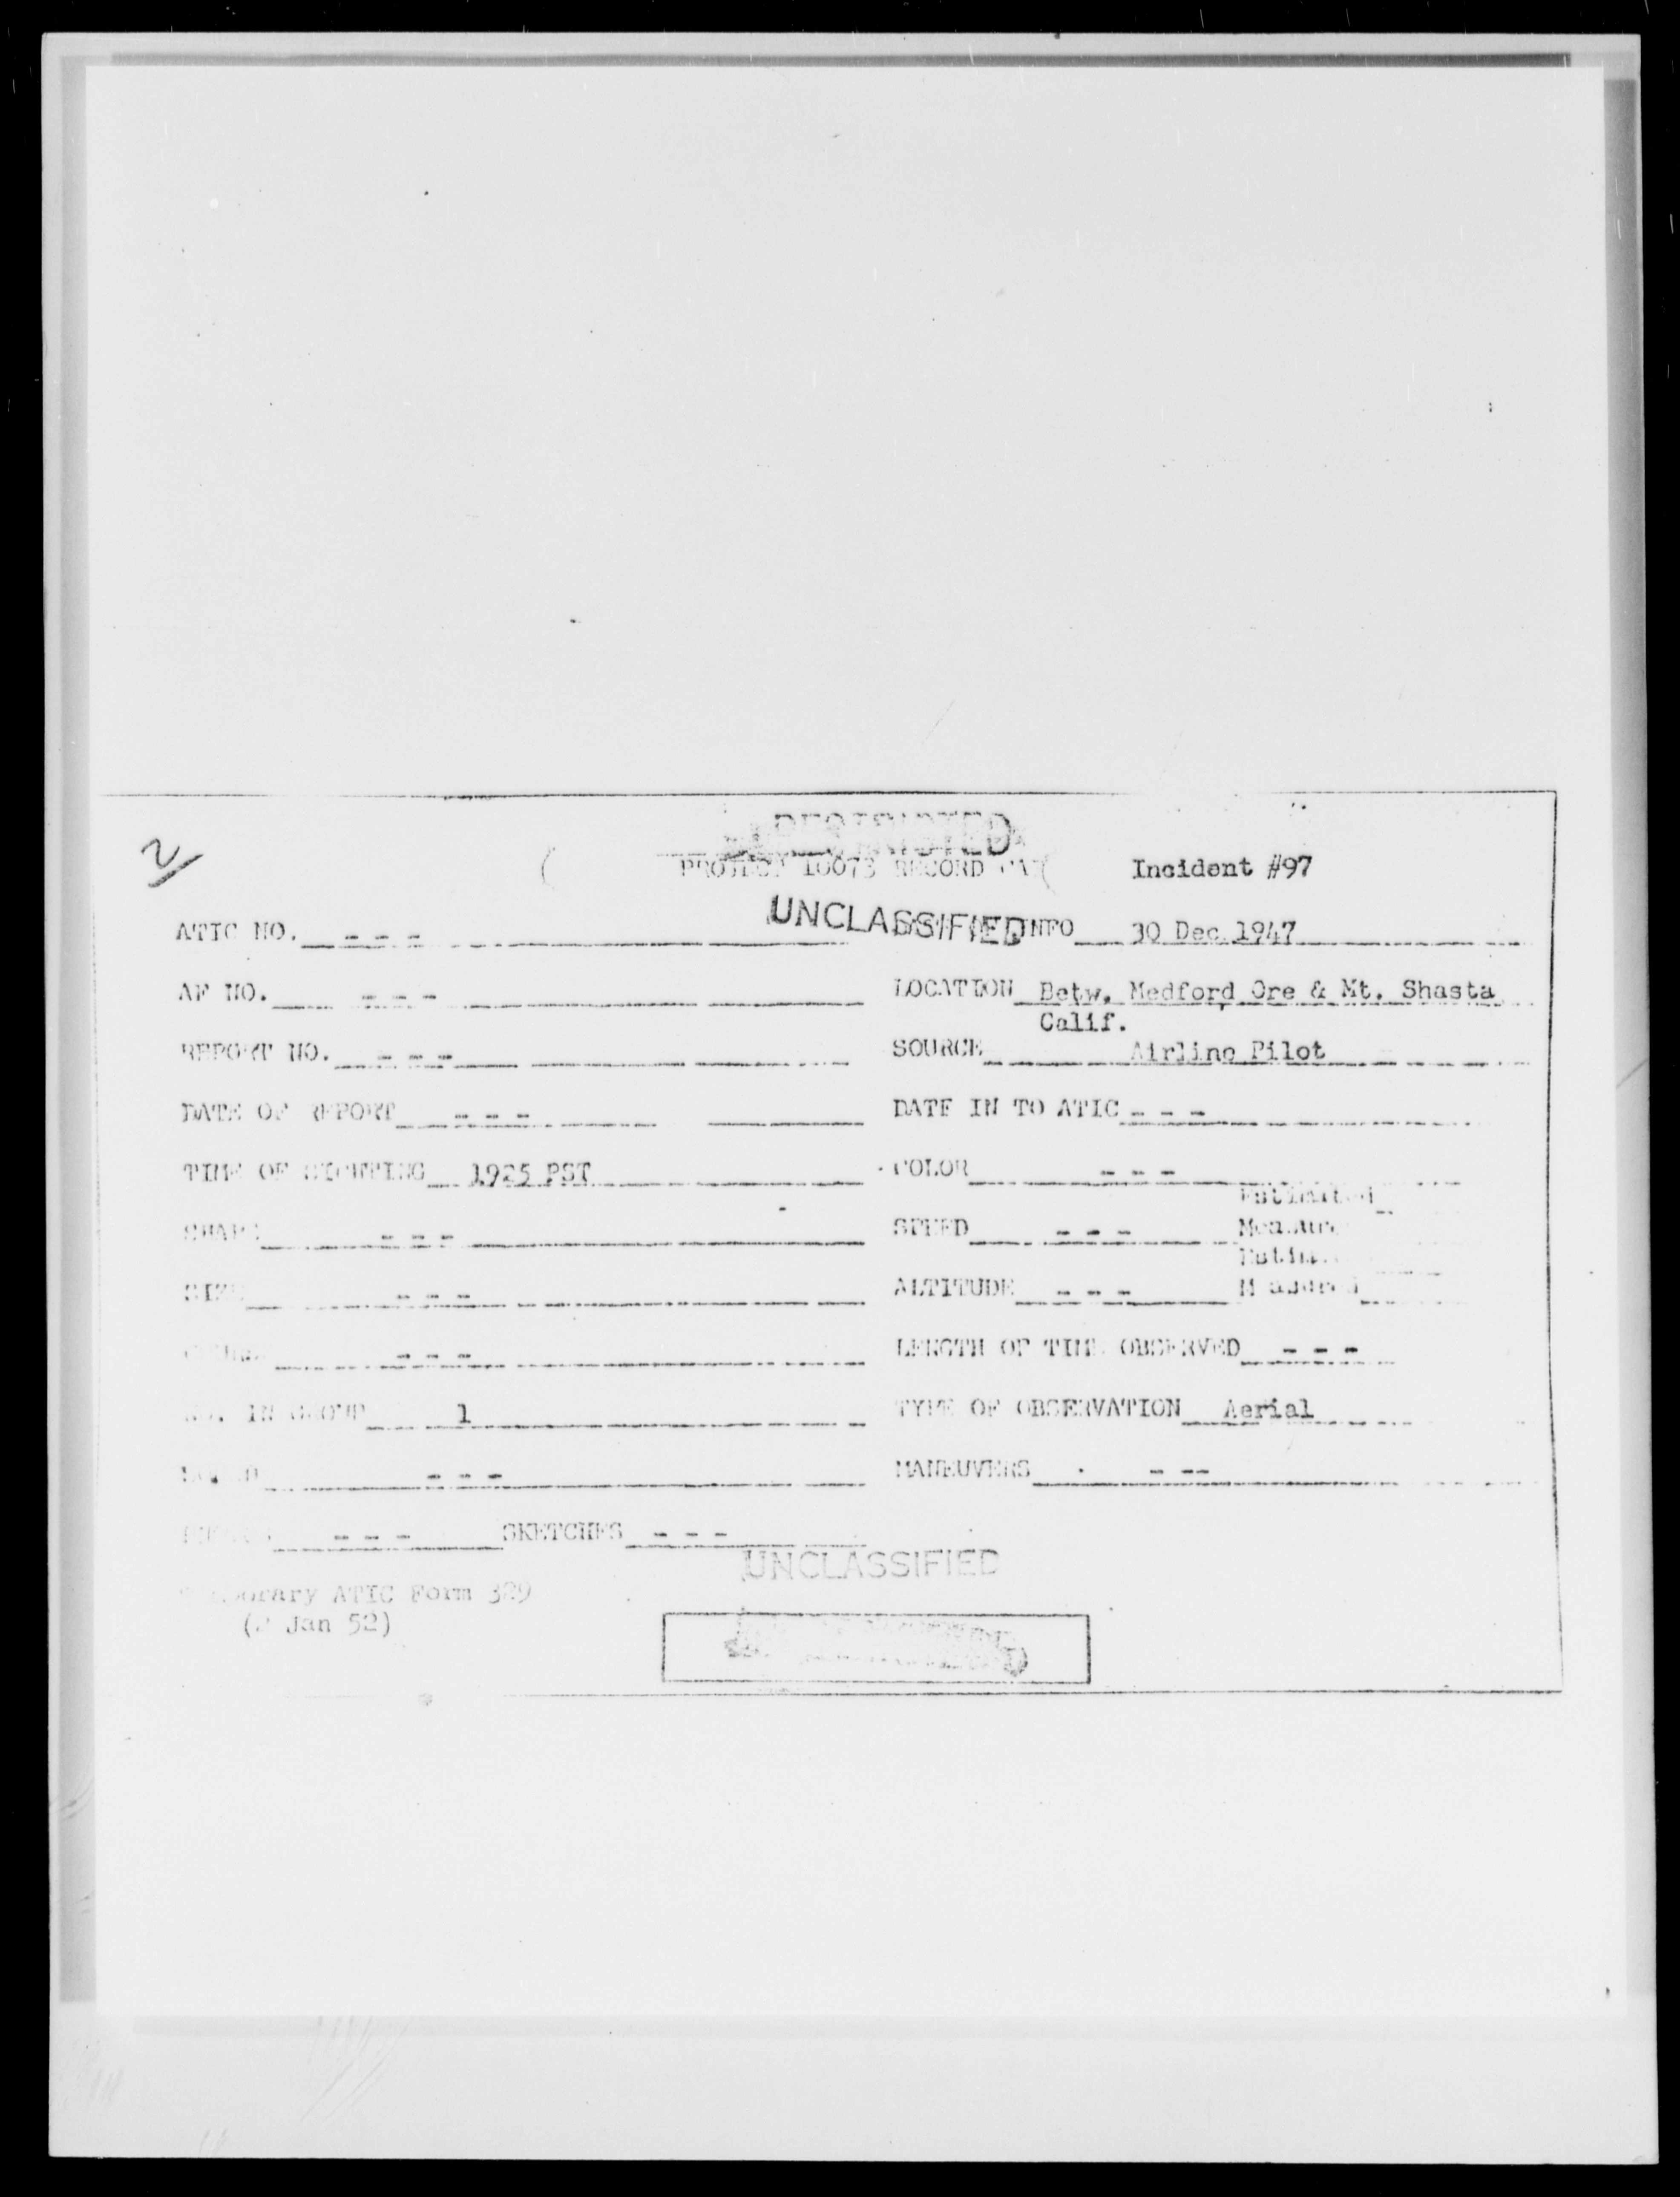 RESTRICTED
PROJECT 10073 RECORD Incident #97
UNCLASSIFIED
ATIC NO. - - - INFO 30 Dec 1947
AF NO. - - - LOCATION Betw. Medford Ore & Mt. Shasta
Calif.
REPORT NO. - - - SOURCE Airline Pilot
DATE OF REPORT - - - DATE IN TO ATIC - - -
TIME OF SIGHTING 1925 PST COLOR - - -
Estimated
SHAPE - - - SPEED - - - Measured
SIZE - - - ALTITUDE - - - Measured
- - - LENGTH OF TIME OBSERVED - - -
NO. IN GROUP 1 TYPE OF OBSERVATION Aerial
- - - MANEUVERS - - -
- - - SKETCHES - - -
UNCLASSIFIED
ATIC Form 329
Jan 52)